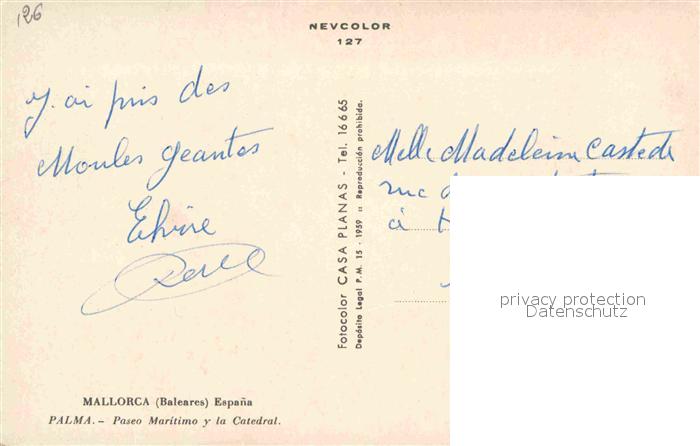 126
NEVCOLOR
127
J. ai pris des
Moules geantes
Elvire
Fotocolor CASA PLANAS - Tel. 16665
Depósito Legal P.M. 15 - 1959 :: Reproducción prohibida.
Melle Madeleine Castede
rue
à
privacy protection
Datenschutz
MALLORCA (Baleares) España
PALMA.- Paseo Marítimo y la Catedral.